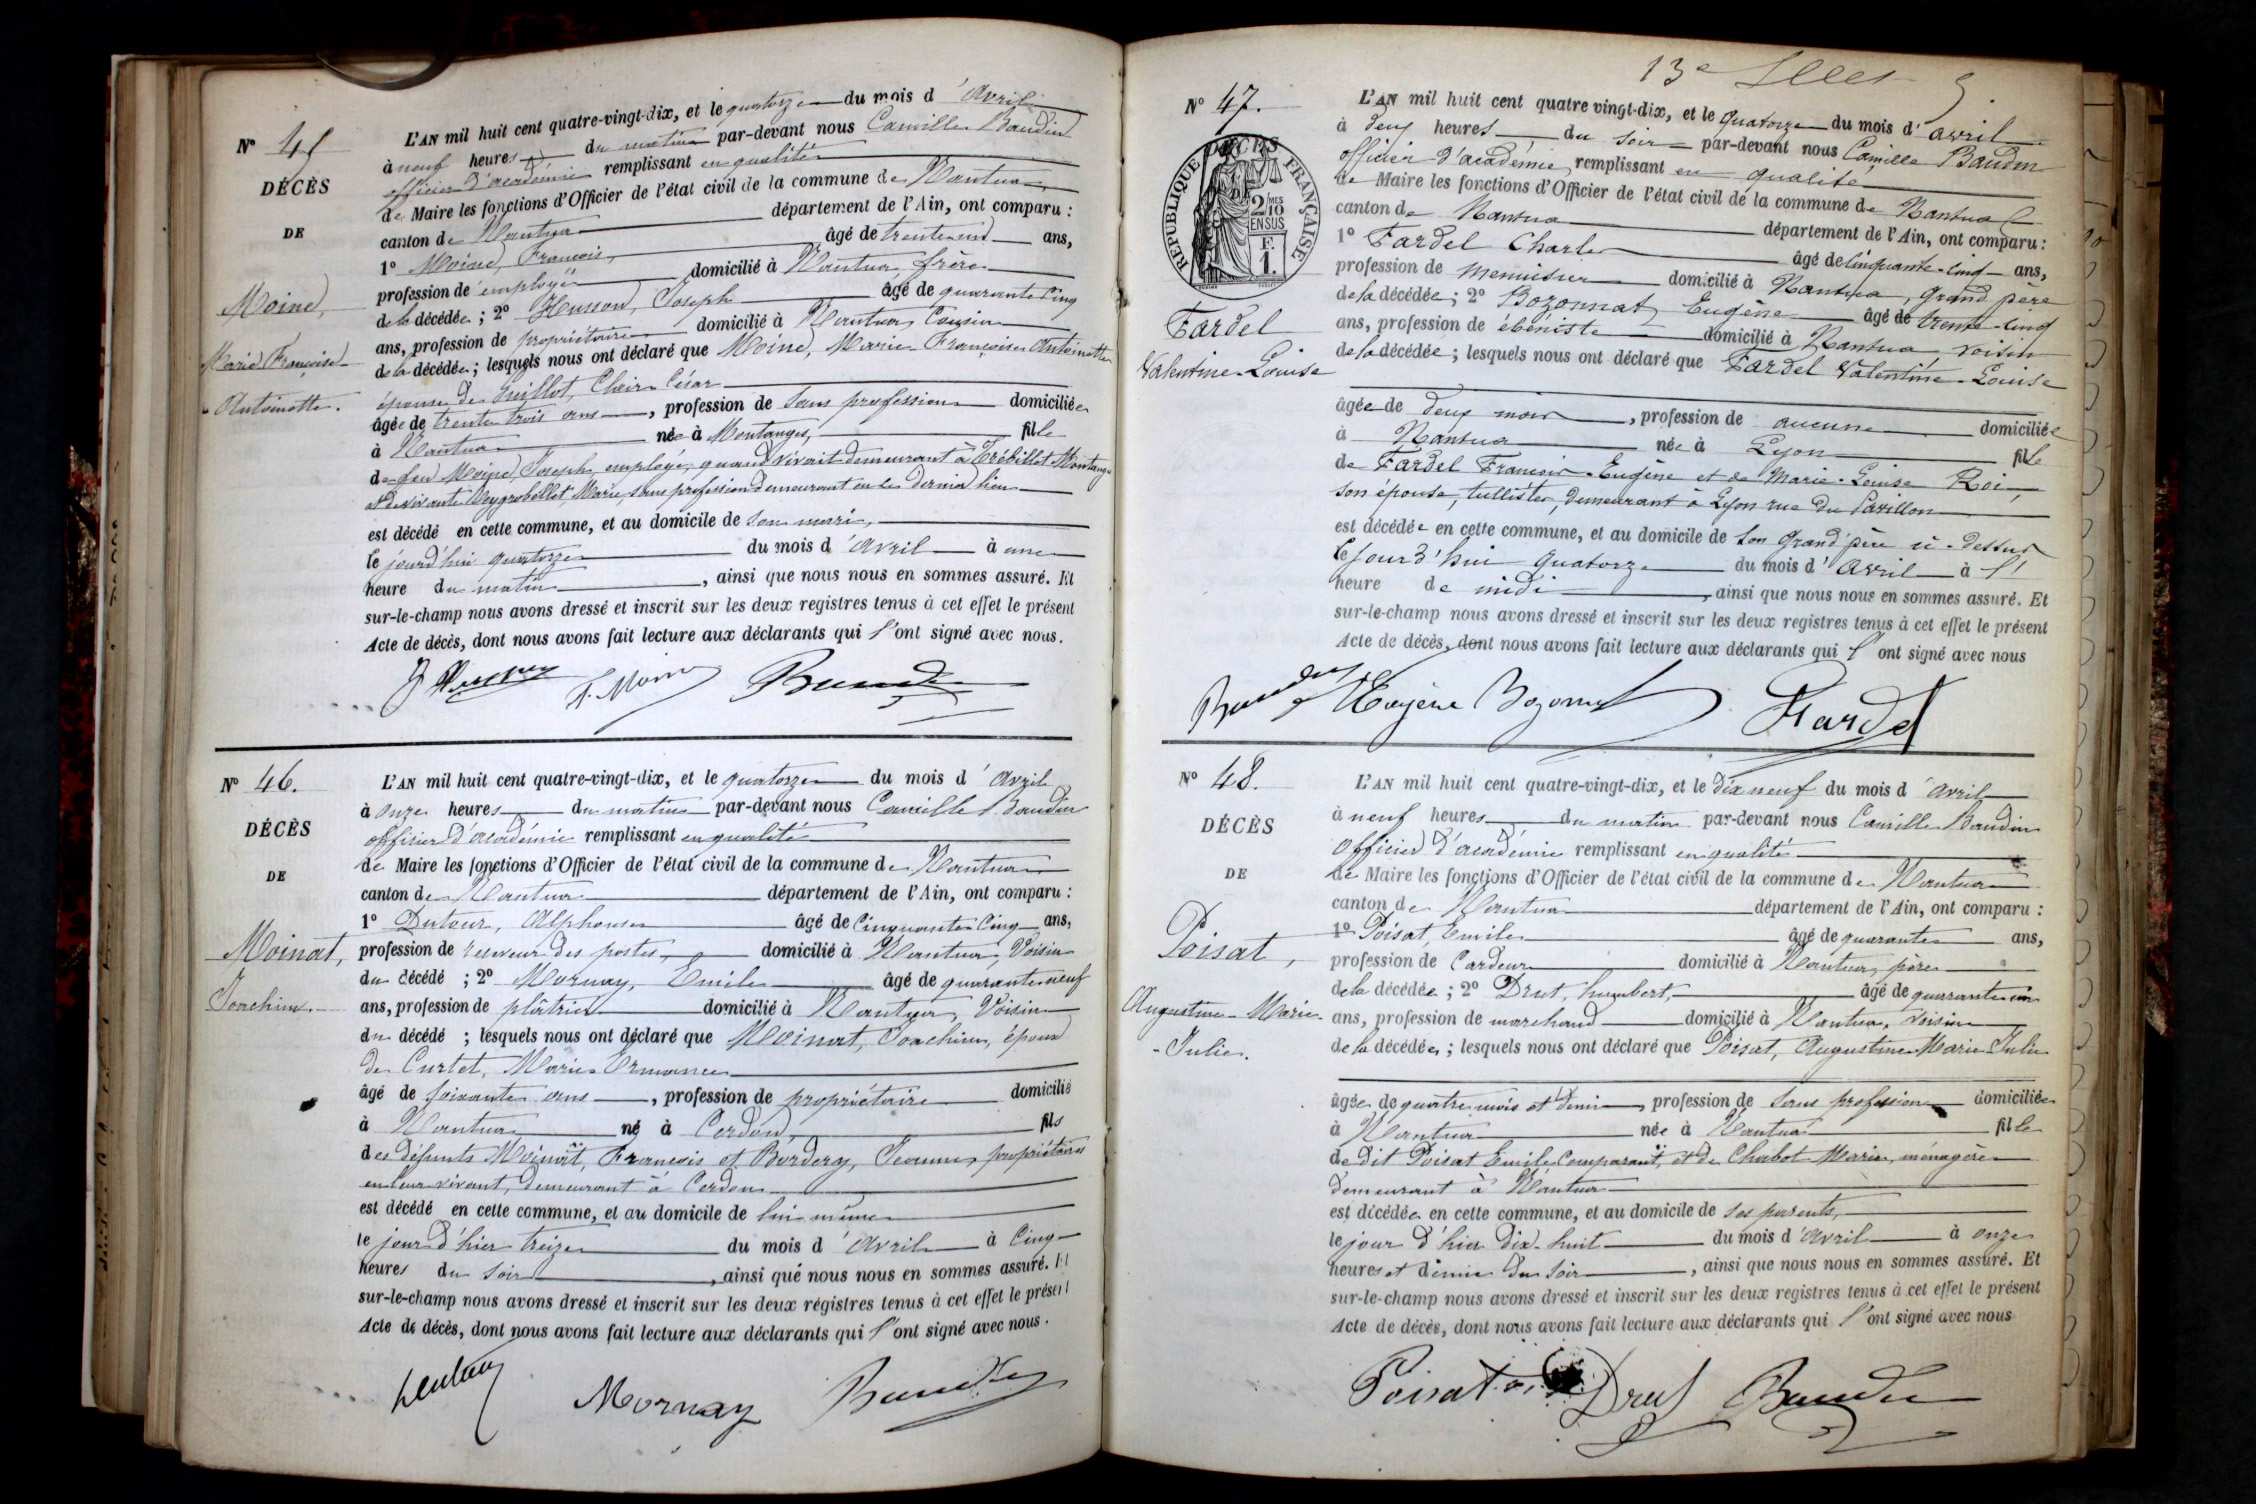 N° 45
DÉCÈS
DE
Moine,
Marie Françoise
Antoinette.
L'AN mil huit cent quatre-vingt-dix, et le quatorze du mois d'Avril
à neuf heures du matin par-devant nous Camille Baudin
officier d'académie remplissant en qualité
de Maire les fonctions d'Officier de l'état civil de la commune de Nantua
canton de Nantua département de l'Ain, ont comparu :
1° Moine, François, âgé de trente un ans,
profession de employé domicilié à Nantua, frère
de la décédée ; 2° Husson, Joseph âgé de quarante cinq
ans, profession de propriétaire domicilié à Nantua, Cousin
de la décédée ; lesquels nous ont déclaré que Moine, Marie Françoise Antoinette
épouse de Guillot, Claire César
âgée de trente trois ans, profession de Sans profession domiciliée
à Nantua née à Montanges, fille
de feu Moine, Joseph, employé, quand vivait demeurant à Trébillet Montanges
et de vivante Marie, sans profession demeurant en ce dernier lieu
est décédé en cette commune, et au domicile de son mari,
le jourd'hui quatorze du mois d'Avril à une
heure du matin, ainsi que nous nous en sommes assuré. Et
sur-le-champ nous avons dressé et inscrit sur les deux registres tenus à cet effet le présent
Acte de décès, dont nous avons fait lecture aux déclarants qui l'ont signé avec nous.
J Husson F. Moine Baudin
N° 46.
DÉCÈS
DE
Moinat,
Joachim.
L'AN mil huit cent quatre-vingt-dix, et le quatorze du mois d'Avril
à onze heures du matin par-devant nous Camille Baudin
officier d'académie remplissant en qualité
de Maire les fonctions d'Officier de l'état civil de la commune de Nantua
canton de Nantua département de l'Ain, ont comparu :
1° Dutour, Alphonse âgé de Cinquante Cinq ans,
profession de receveur des postes, domicilié à Nantua, Voisin
du décédé ; 2° Mornay, Emile âgé de quarante neuf
ans, profession de plâtrier domicilié à Nantua, Voisin
du décédé ; lesquels nous ont déclaré que Moinat, Joachim, époux
de Curtet, Marie Ermance
âgé de soixante ans, profession de propriétaire domicilié
à Nantua né à Cerdon, fils
des défunts Moinat, François et Bordery, Jeanne, propriétaires
en leur vivant, demeurant à Cerdon
est décédé en cette commune, et au domicile de lui même
le jour d'hier treize du mois d'Avril à Cinq
heures du soir, ainsi que nous nous en sommes assuré. Et
sur-le-champ nous avons dressé et inscrit sur les deux régistres tenus à cet effet le présent
Acte de décès, dont nous avons fait lecture aux déclarants qui l'ont signé avec nous.
Mornay Baudin
13e
N° 47.
RÉPUBLIQUE FRANÇAISE
2 MES 10
EN SUS
F.
1.
Fardel
Valentine-Louise
L'AN mil huit cent quatre vingt-dix, et le quatorze du mois d'avril
à deux heures du soir par-devant nous Camille Baudin
officier d'académie, remplissant en qualité
de Maire les fonctions d'Officier de l'état civil de la commune de Nantua
canton de Nantua département de l'Ain, ont comparu :
1° Fardel Charles âgé de Cinquante-cinq ans,
profession de menuisier domicilié à Nantua, grand père
de la décédée ; 2° Bozonnat Eugène âgé de trente-cinq
ans, profession de ébéniste domicilié à Nantua voisin
de la décédée ; lesquels nous ont déclaré que Fardel Valentine-Louise
âgée de deux mois, profession de aucune domiciliée
à Nantua née à Lyon fille
de Fardel François-Eugène et de Marie-Louise Roi,
son épouse, tulliste, demeurant à Lyon rue du Pavillon
est décédée en cette commune, et au domicile de son grand'père ci-dessus
le jourd'hui quatorze du mois d'avril à l'
heure de midi, ainsi que nous nous en sommes assuré. Et
sur-le-champ nous avons dressé et inscrit sur les deux registres tenus à cet effet le présent
Acte de décès, dont nous avons fait lecture aux déclarants qui l'ont signé avec nous
Baudin Eugène Bozonnat Fardel
N° 48.
DÉCÈS
DE
Poisat,
Augustine-Marie-
Julie.
L'AN mil huit cent quatre-vingt-dix, et le dix neuf du mois d'Avril
à neuf heures du matin par-devant nous Camille Baudin
officier d'académie remplissant en qualité
de Maire les fonctions d'Officier de l'état civil de la commune de Nantua
canton de Nantua département de l'Ain, ont comparu :
1° Poisat, Emile âgé de quarante ans,
profession de Cardeur domicilié à Nantua, père
de la décédée ; 2° Drut, humbert, âgé de quarante un
ans, profession de marchand domicilié à Nantua, voisin
de la décédée ; lesquels nous ont déclaré que Poisat, Augustine Marie Julie
âgée de quatre mois et demi, profession de Sans profession domiciliée
à Nantua née à Nantua fille
de dit Poisat Emile Comparant, et de Chabot Marie, ménagère
demeurant à Nantua
est décédée en cette commune, et au domicile de ses parents,
le jour d'hier dix-huit du mois d'Avril à onze
heures et demie du soir, ainsi que nous nous en sommes assuré. Et
sur-le-champ nous avons dressé et inscrit sur les deux registres tenus à cet effet le présent
Acte de décès, dont nous avons fait lecture aux déclarants qui l'ont signé avec nous
Poisat Drut Baudin